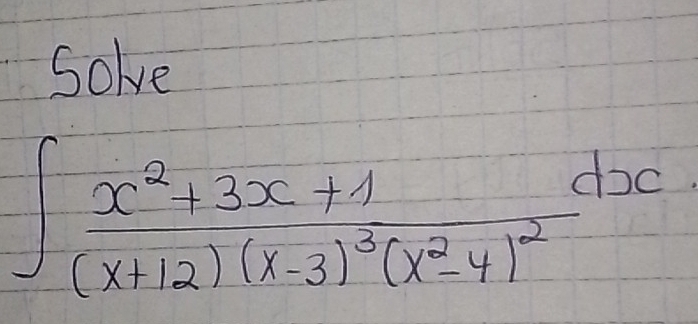 Solve
∫ x²+3x+1 / (x+12)(x-3)³(x²-4)² dx.